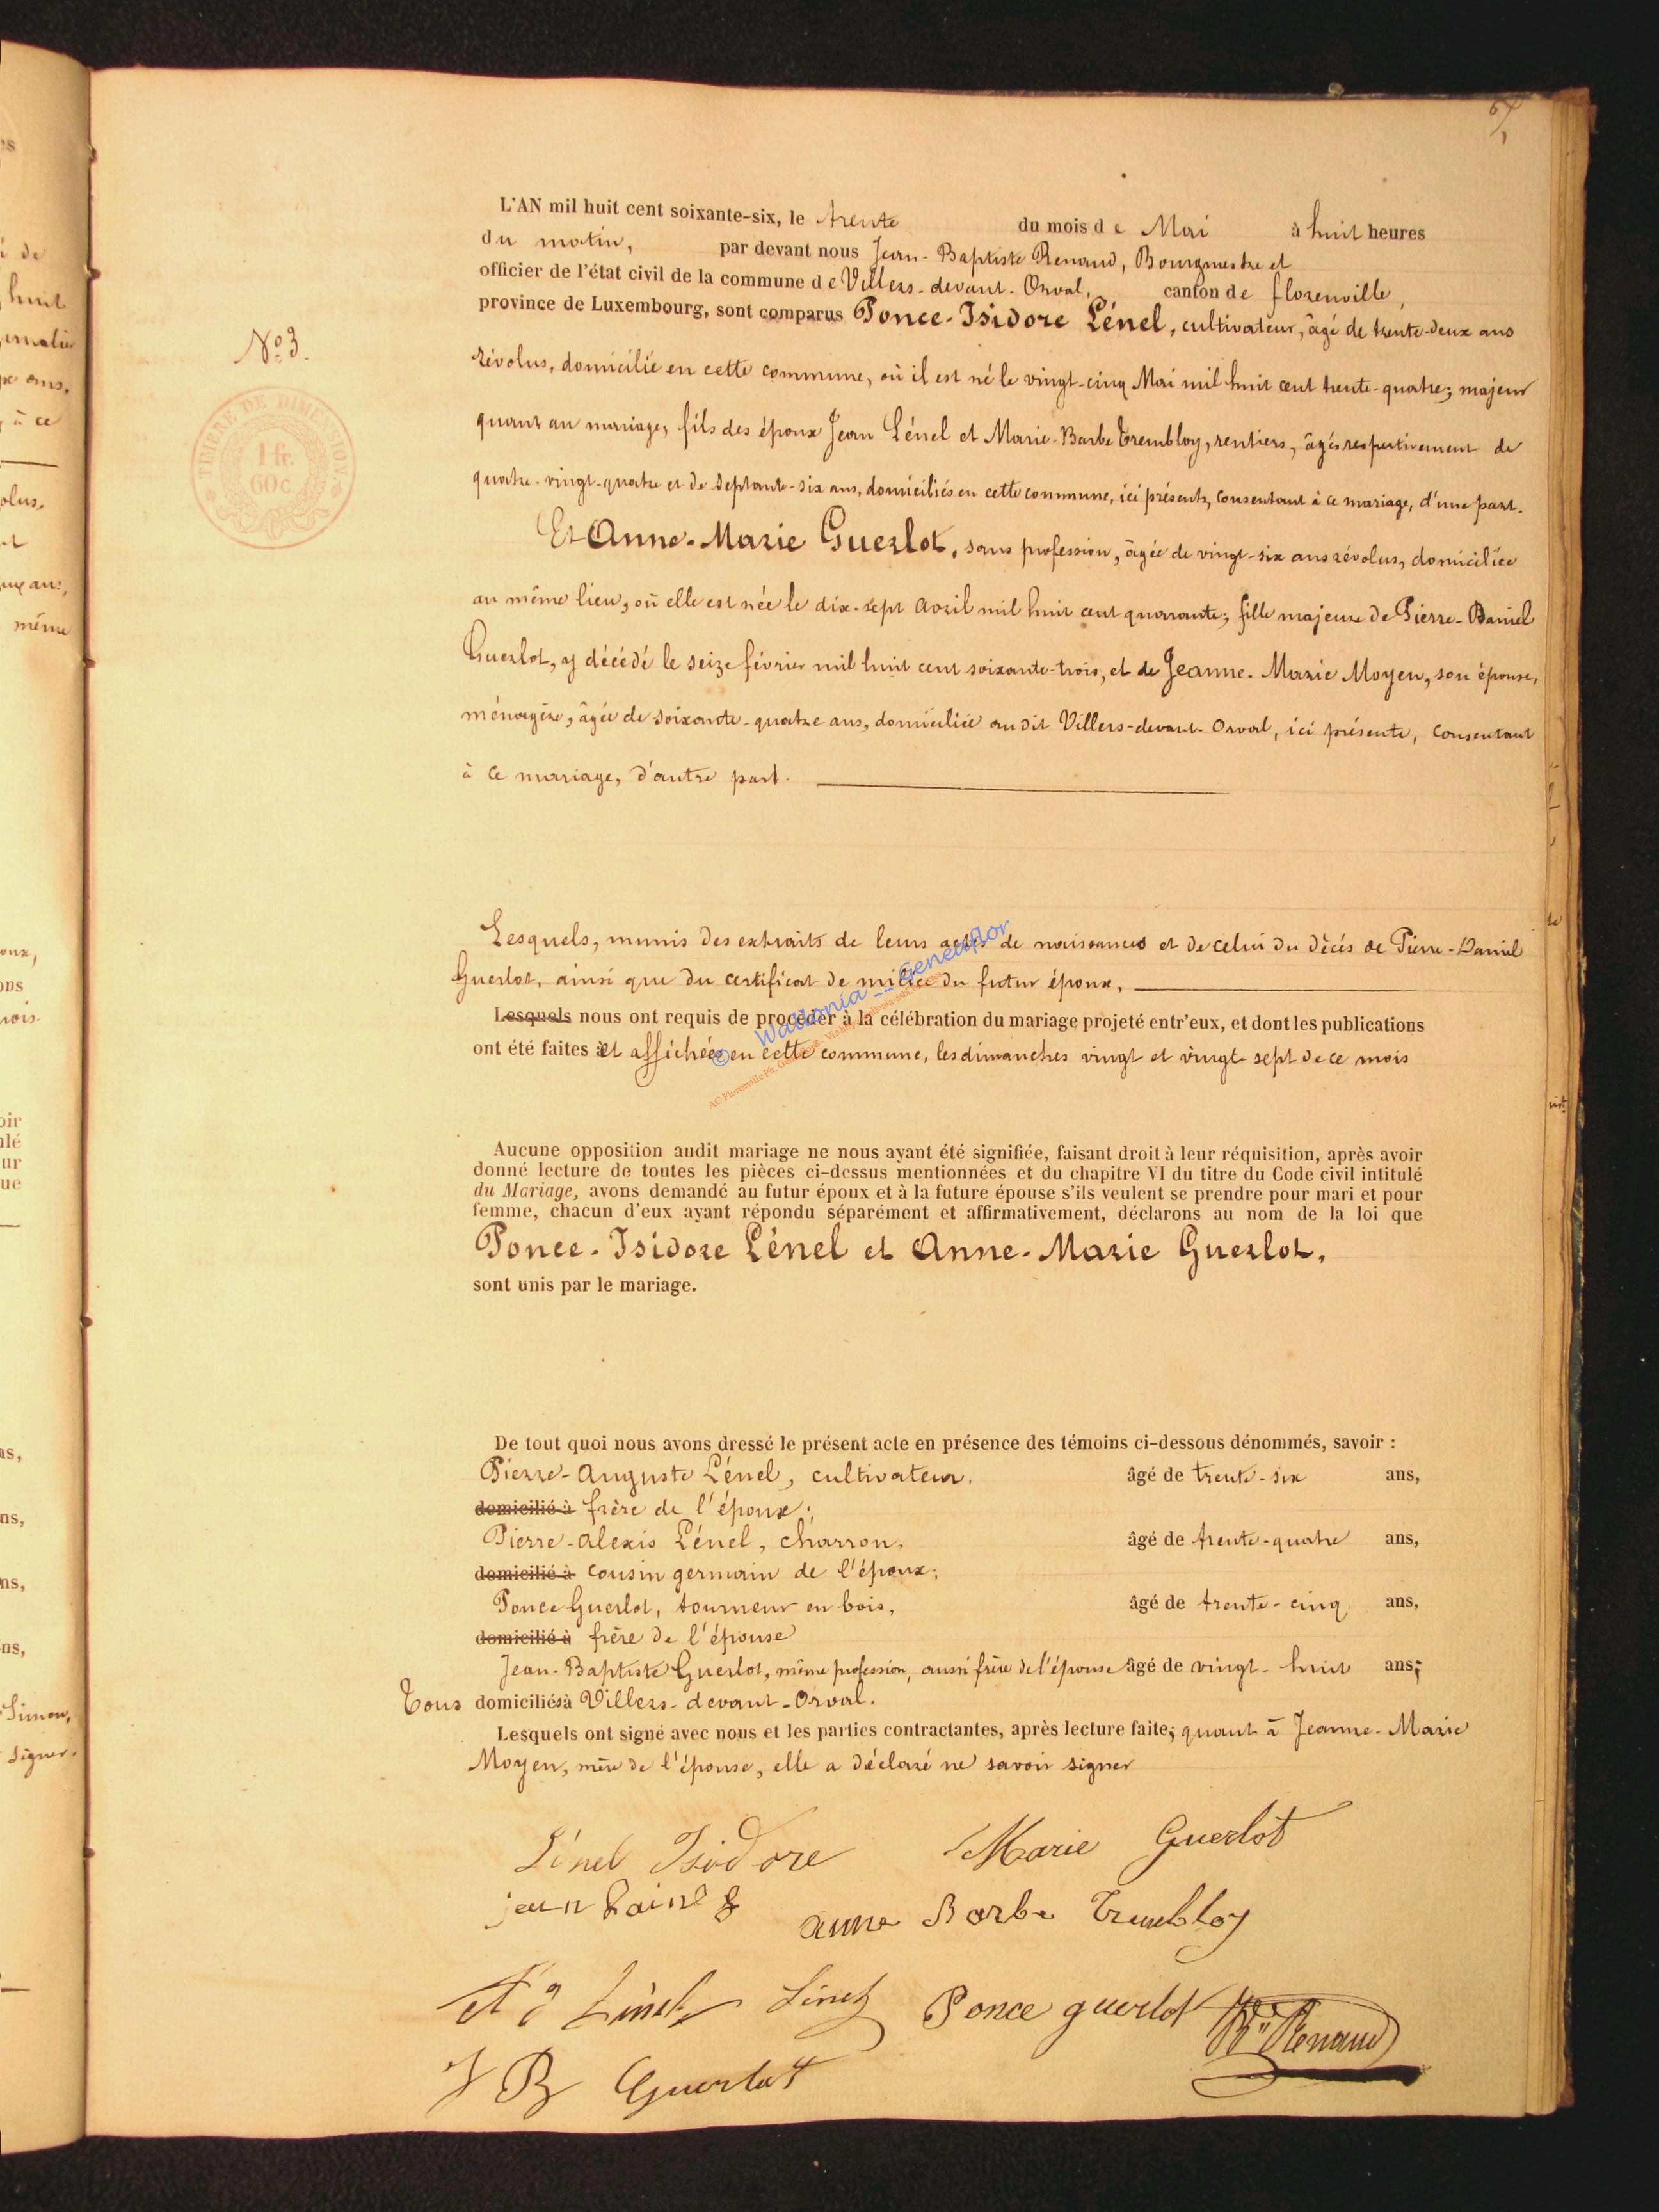 L'AN mil huit cent soixante-six, le trente du mois de Mai à huit heures
du matin, par devant nous Jean-Baptiste Renaud, Bourgmestre et
officier de l'état civil de la commune de Villers-devant-Orval, canton de florenville,
province de Luxembourg, sont comparus Ponce-Isidore Lénel, cultivateur, âgé de trente-deux ans
N° 3.
révolus, domicilié en cette commune, où il est né le vingt-cinq Mai mil huit cent trente-quatre; majeur
quant au mariage, fils des époux Jean Lénel et Marie-Barbe Trembloy, rentiers, âgés respectivement de
quatre-vingt-quatre et de septante-six ans, domiciliés en cette commune, ici présents, consentant à ce mariage, d'une part.
TIMBRE DE DIMENSION
1 fr.
60 c.
Et Anne-Marie Guerlot, sans profession, âgée de vingt-six ans révolus, domiciliée
au même lieu, où elle est née le dix-sept Avril mil huit cent quarante; fille majeure de Pierre-Daniel
Guerlot, y décédé le seize février mil huit cent soixante-trois, et de Jeanne-Marie Moyen, son épouse,
ménagère, âgée de soixante-quatre ans, domiciliée audit Villers-devant-Orval, ici présente, consentant
à ce mariage, d'autre part.
Lesquels, munis des extraits de leurs actes de naissances et de celui du décès de Pierre-Daniel
Guerlot, ainsi que du certificat de milice du futur époux,
© Wallonia__Geneaflor
Lesquels nous ont requis de procéder à la célébration du mariage projeté entr'eux, et dont les publications
ont été faites et affichées en cette commune, les dimanches vingt et vingt sept de ce mois
Aucune opposition audit mariage ne nous ayant été signifiée, faisant droit à leur réquisition, après avoir
donné lecture de toutes les pièces ci-dessus mentionnées et du chapitre VI du titre du Code civil intitulé
du Mariage, avons demandé au futur époux et à la future épouse s'ils veulent se prendre pour mari et pour
femme, chacun d'eux ayant répondu séparément et affirmativement, déclarons au nom de la loi que
Ponce-Isidore Lénel et Anne-Marie Guerlot,
sont unis par le mariage.
De tout quoi nous avons dressé le présent acte en présence des témoins ci-dessous dénommés, savoir :
Pierre-Auguste Lénel, cultivateur, âgé de trente-six ans,
domicilié à frère de l'époux;
Pierre-Alexis Lénel, charron, âgé de trente-quatre ans,
domicilié à cousin germain de l'époux;
Ponce Guerlot, tourneur en bois, âgé de trente-cinq ans,
domicilié à frère de l'épouse
Jean-Baptiste Guerlot, même profession, aussi frère de l'épouse âgé de vingt-huit ans;
Tous domiciliés à Villers-devant-Orval.
Lesquels ont signé avec nous et les parties contractantes, après lecture faite; quant à Jeanne-Marie
Moyen, mère de l'épouse, elle a déclaré ne savoir signer
Lénel Isidore Marie Guerlot
jean anne Barbe Trembloy
Lénel Lénel Ponce guerlot Renaud
J B Guerlot